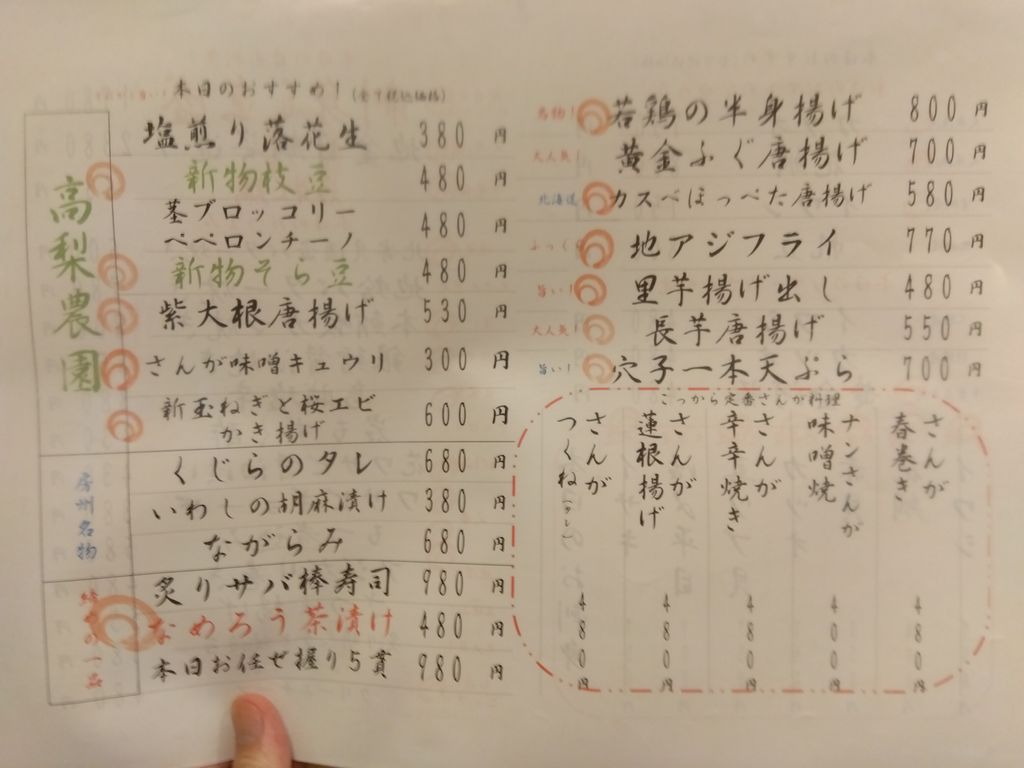 本日のおすすめ！(全て税込価格)
高梨農園
塩煎り落花生 380 円
新物枝豆 480 円
茎ブロッコリー
ペペロンチーノ 480 円
新物そら豆 480 円
紫大根唐揚げ 530 円
さんが味噌キュウリ 300 円
新玉ねぎと桜エビ
かき揚げ 600 円
房州名物
くじらのタレ 680 円
いわしの胡麻漬け 380 円
ながらみ 680 円
の一品
炙りサバ棒寿司 980 円
なめろう茶漬け 480 円
本日お任せ握り5貫 980 円
名物！ 若鶏の半身揚げ 800 円
大人気！ 黄金ふぐ唐揚げ 700 円
北海道 カスベほっぺた唐揚げ 580 円
ふっくら 地アジフライ 770 円
旨い！ 里芋揚げ出し 480 円
大人気！ 長芋唐揚げ 550 円
旨い！ 穴子一本天ぷら 700 円
こっから定番さんが料理
さんが
春巻き 480円
ナンさんが
味噌焼 400円
さんが
辛辛焼き 480円
さんが
蓮根揚げ 480円
さんが
つくね(タレ) 480円